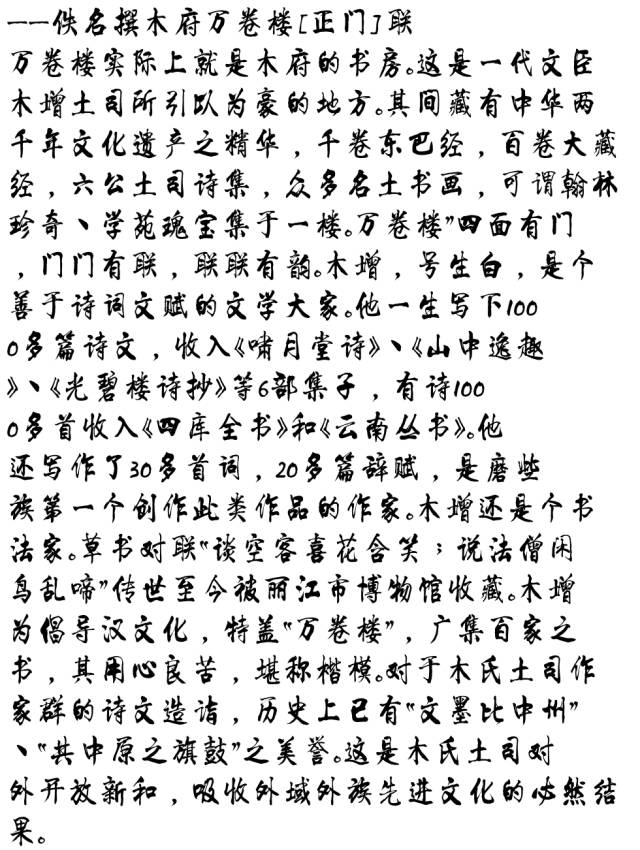 ——佚名撰木府万卷楼[正门]联
万卷楼实际上就是木府的书房。这是一代文臣
木增土司所引以为豪的地方。其间藏有中华两
千年文化遗产之精华，千卷东巴经，百卷大藏
经，六公土司诗集，众多名士书画，可谓翰林
珍奇、学苑瑰宝集于一楼。万卷楼”四面有门
，门门有联，联联有韵。木增，号生白，是个
善于诗词文赋的文学大家。他一生写下100
0多篇诗文，收入《啸月堂诗》、《山中逸趣
》、《光碧楼诗抄》等6部集子，有诗100
0多首收入《四库全书》和《云南丛书》。他
还写作了30多首词，20多篇辞赋，是磨些
族第一个创作此类作品的作家。木增还是个书
法家。草书对联“谈空客喜花含笑；说法僧闲
鸟乱啼”传世至今被丽江市博物馆收藏。木增
为倡导汉文化，特盖“万卷楼”，广集百家之
书，其用心良苦，堪称楷模。对于木氏土司作
家群的诗文造诣，历史上已有“文墨比中州”
、“共中原之旗鼓”之美誉。这是木氏土司对
外开放新和，吸收外域外族先进文化的必然结
果。